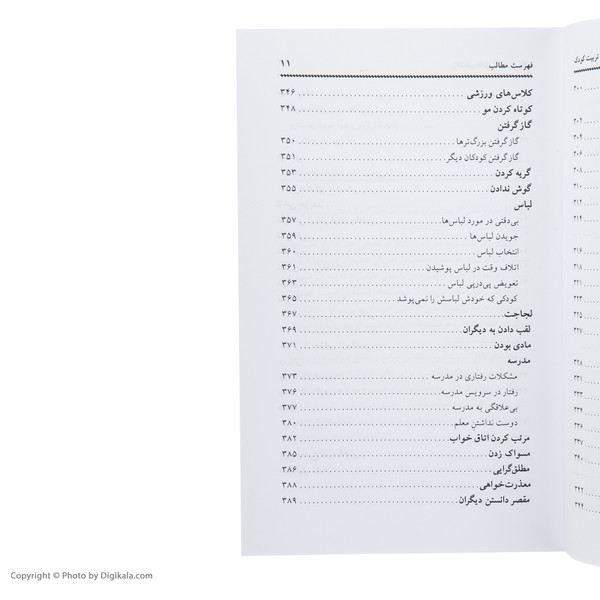 تربیت کودک
۲۰۰
۲۰۲
۲۰۴
۲۰۶
۲۰۸
۲۱۰
۲۱۲
۲۱۴
۲۱۶
۲۱۸
۲۲۱
۲۲۳
۲۲۵
۲۲۷
۲۲۸
۲۳۱
۲۳۳
۲۳۴
۲۳۶
۲۳۷
۲۴۰
۲۴۲
۲۴۴
فهرست مطالب ۱۱
کلاس‌های ورزشی ۳۴۶
کوتاه کردن مو ۳۴۸
گاز گرفتن
گاز گرفتن بزرگ‌ترها ۳۵۰
گاز گرفتن کودکان دیگر ۳۵۱
گریه کردن ۳۵۳
گوش ندادن ۳۵۵
لباس
بی‌دقتی در مورد لباس‌ها ۳۵۷
جویدن لباس‌ها ۳۵۹
انتخاب لباس ۳۶۰
اتلاف وقت در لباس پوشیدن ۳۶۱
تعویض پی‌درپی لباس ۳۶۳
کودکی که خودش لباسش را نمی‌پوشد ۳۶۵
لجاجت ۳۶۷
لقب دادن به دیگران ۳۶۹
مادی بودن ۳۷۱
مدرسه
مشکلات رفتاری در مدرسه ۳۷۳
رفتار در سرویس مدرسه ۳۷۶
بی‌علاقگی به مدرسه ۳۷۷
دوست نداشتن معلم ۳۸۰
مرتب کردن اتاق خواب ۳۸۲
مسواک زدن ۳۸۵
مطلق‌گرایی ۳۸۶
معذرت‌خواهی ۳۸۸
مقصر دانستن دیگران ۳۸۹
Copyright © Photo by Digikala.com